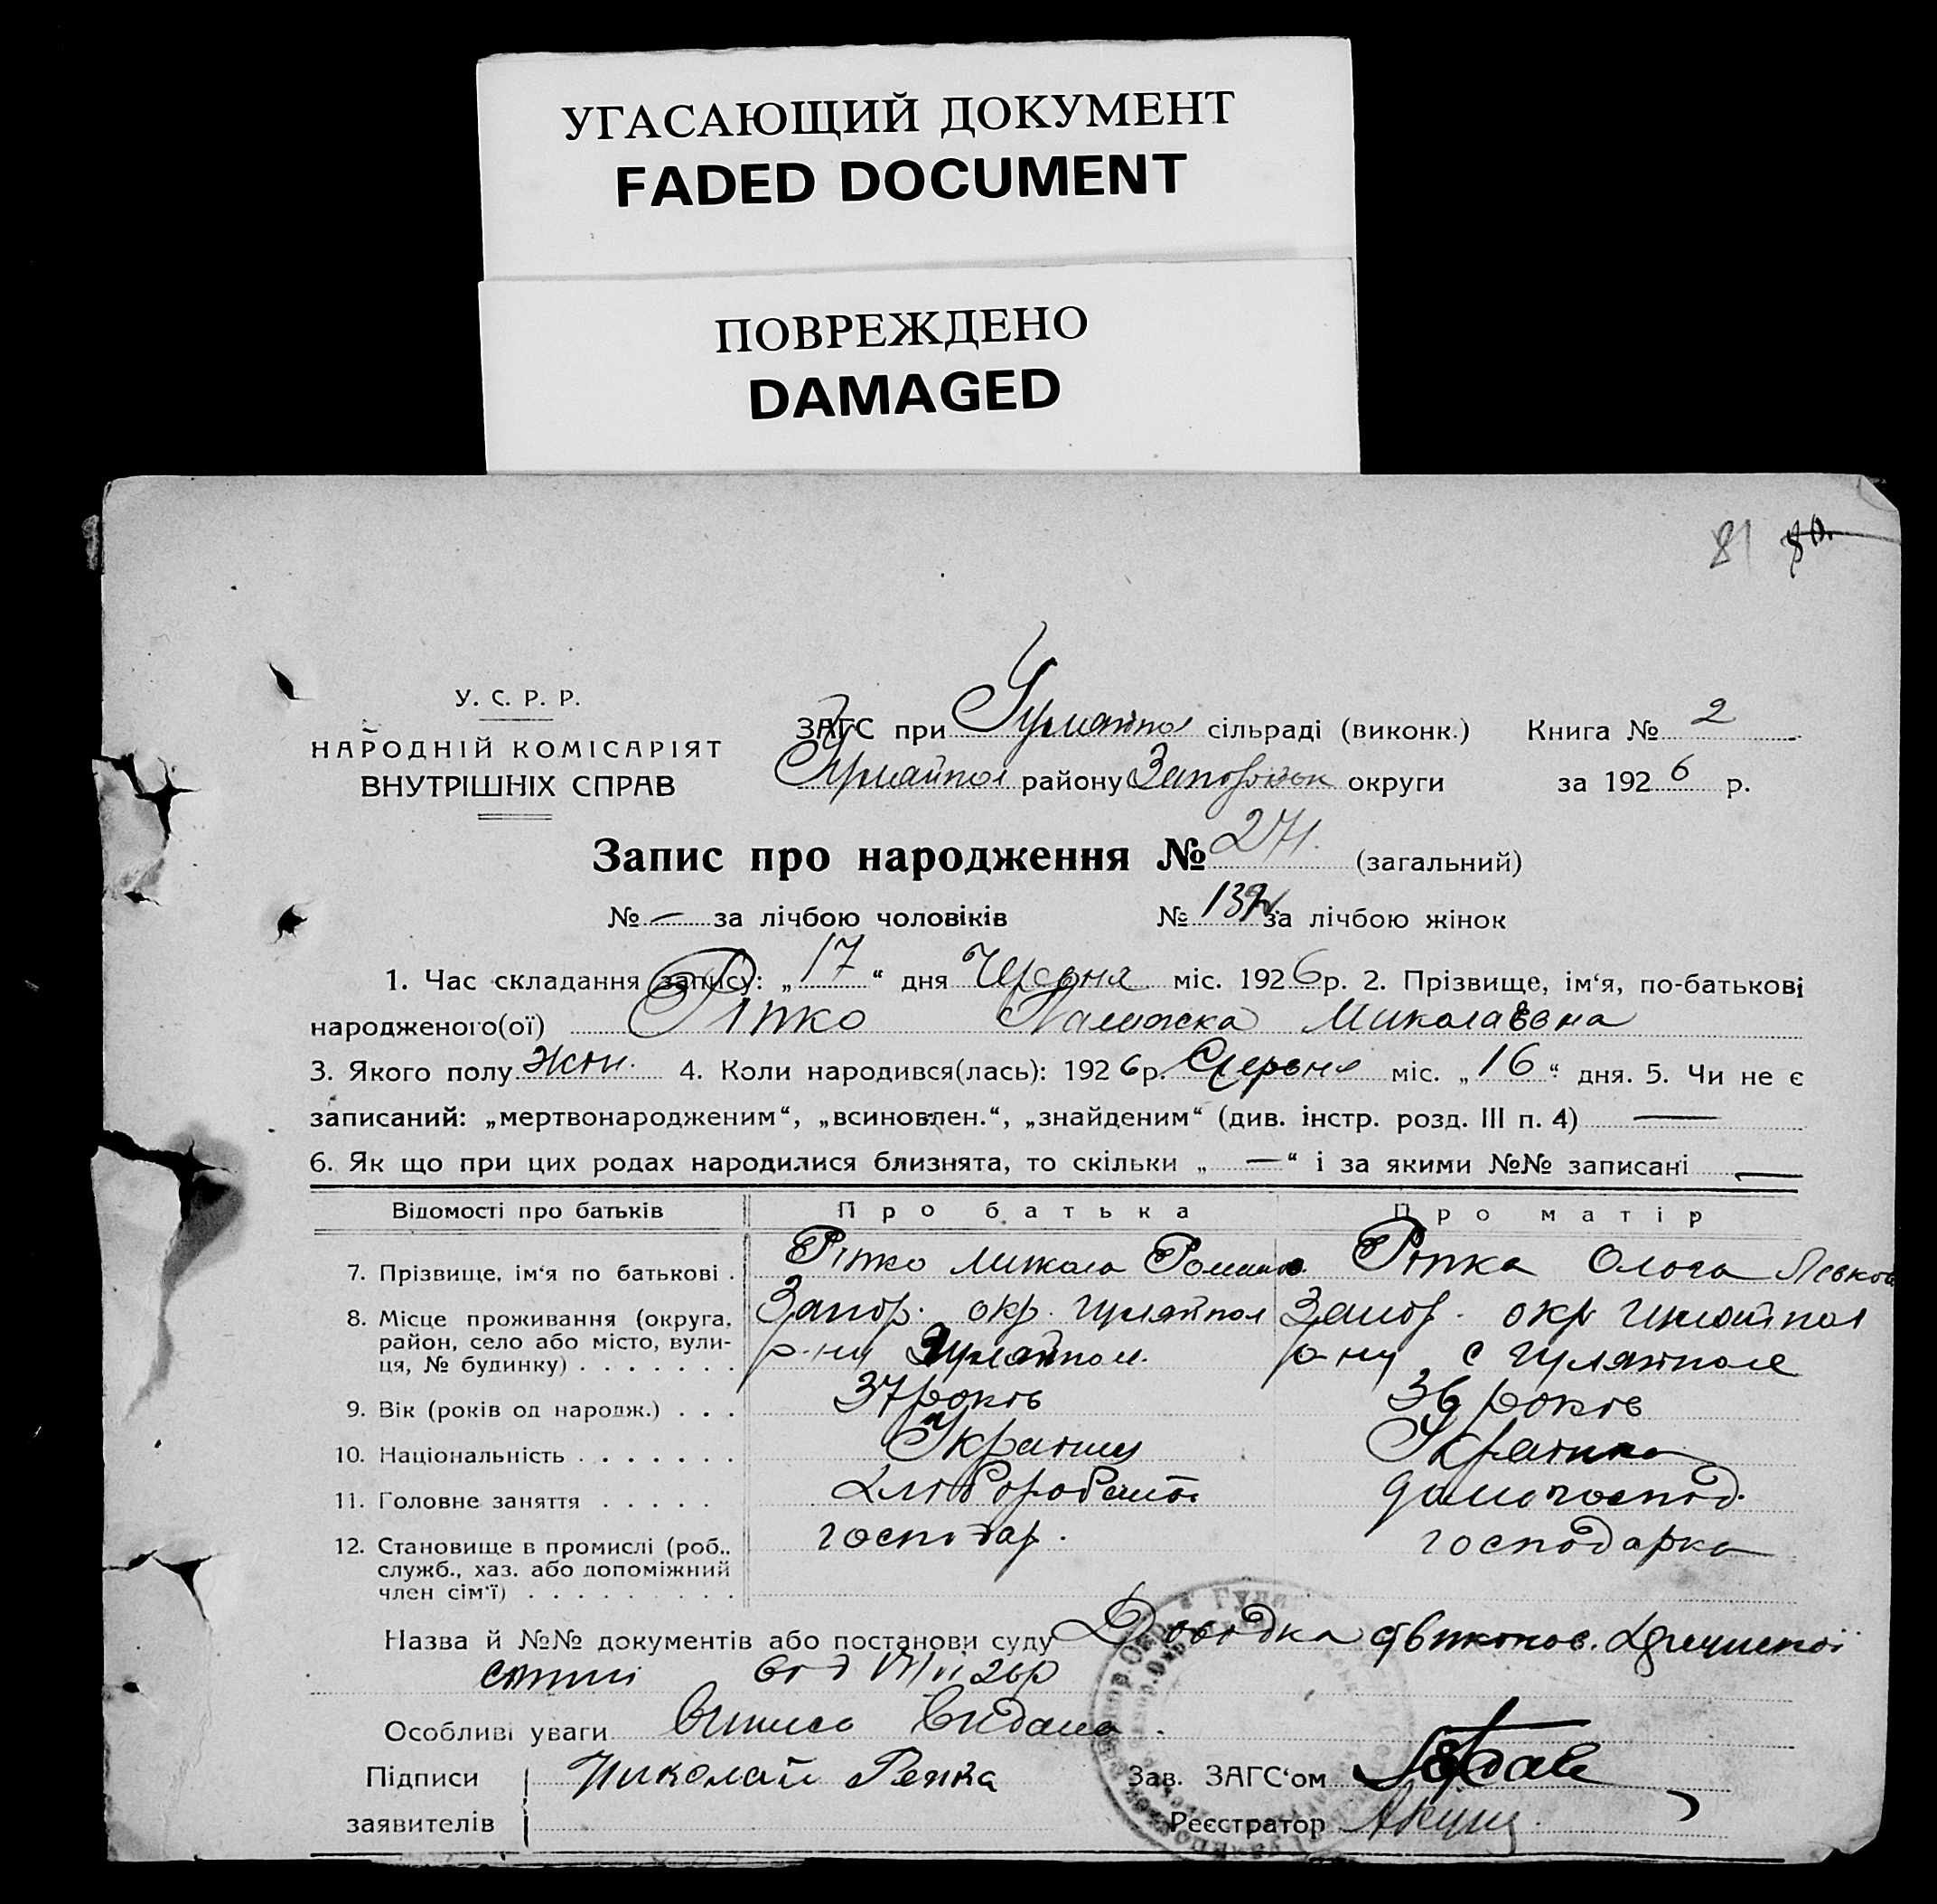 УГАСАЮЩИЙ ДОКУМЕНТ
FADED DOCUMENT
ПОВРЕЖДЕНО
DAMAGED
81 80.
У. С. Р. Р.
НАРОДНІЙ КОМІСАРІЯТ
ВНУТРІШНІХ СПРАВ
ЗАГС при Гуляйпол сільраді (виконк.) Книга № 2
Гуляйпол району Запорізьк округи за 1926 р.
Запис про народження № 271. (загальний)
№ — за лічбою чоловіків № за лічбою жінок
1. Час складання запису: „17“ дня Червня міс. 1926 р. 2. Прізвище, ім‘я, по-батькові
народженого(ої) Ріпко Миколаєвна
3. Якого полу жін. 4. Коли народився(лась): 1926 р. Червня міс. „16“ дня. 5. Чи не є
записаний: „мертвонародженим“, „всиновлен.“, „знайденим“ (див. інстр. розд. III п. 4) —
6. Як що при цих родах народилися близнята, то скільки „ — “ і за якими №№ записані —
Відомості про батьків Про батька Про матір
7. Прізвище, ім‘я по батькові . Ріпко Микола Роман Ріпка Олога Левков
8. Місце проживання (округа, район, село або місто, вулиця, № будинку) . . . . . . . Запор. окр. Гуляйпол р-ну Гуляйпол. Запор. окр Гуляйпол р-ну с Гуляйполе
9. Вік (років од народж.) . . . 37 років 36 років
10. Національність . . . . . . . Українц Українка
11. Головне заняття . . . . . Хлібороб домогоспод.
12. Становище в промислі (роб., служб., хаз. або допоміжний член сім‘ї) . . . . . . . . . господар. господарка
Назва й №№ документів або постанови суду Довідка
від 17/VI 26р
Особливі уваги Випись видана.
Підписи Николай Репка Зав. ЗАГС‘ом
заявителів Реєстратор